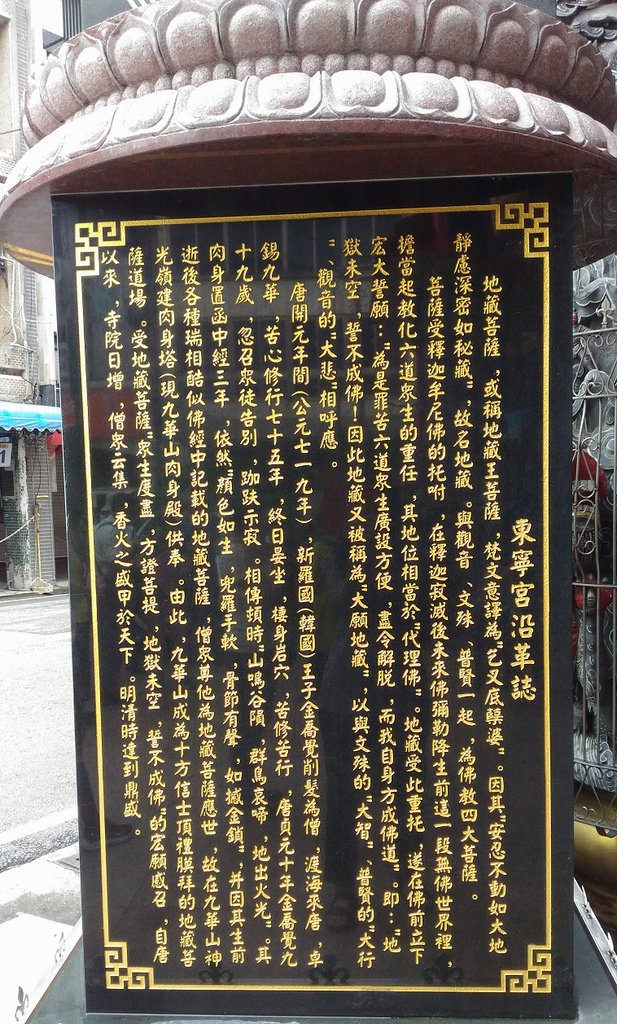 東寧宮沿革誌
地藏菩薩,或稱地藏王菩薩,梵文意譯為“乞叉底蘗婆”。因其“安忍不動如大地
靜慮深密如秘藏”,故名地藏。與觀音、文殊、普賢一起,為佛教四大菩薩。
菩薩受釋迦牟尼佛的托咐,在釋迦寂滅後未來佛彌勒降生前這一段無佛世界裡,
擔當起教化六道眾生的重任,其地位相當於“代理佛”。地藏受此重托,遂在佛前立下
宏大誓願:“為是罪苦六道眾生廣設方便,盡令解脱,而我自身方成佛道”。即:“地
獄未空,誓不成佛!因此地藏又被稱為“大願地藏”,以與文殊的“大智”、普賢的“大行
”、觀音的“大悲”相呼應。
唐開元年間(公元七一九年),新羅國(韓國)王子金喬覺削髮為僧,渡海來唐,卓
錫九華,苦心修行七十五年,終日晏坐,棲身岩穴,苦修苦行,唐貞元十年金喬覺九
十九歲,忽召眾徒告別,跏趺示寂。相傳頓時“山鳴谷隕,群鳥哀啼,地出火光”。其
肉身置函中經三年,依然“顏色如生,兜羅手軟,骨節有聲,如撼金鎖”,并因其生前
逝後各種瑞相酷似佛經中記載的地藏菩薩,僧眾尊他為地藏菩薩應世,故在九華山神
光嶺建肉身塔(現九華山肉身殿)供奉。由此,九華山成為十方信士頂裡膜拜的地藏菩
薩道場。受地藏菩薩“眾生度盡,方證菩提,地獄未空,誓不成佛”的宏願感召,自唐
以來,寺院日增,僧眾云集,香火之盛甲於天下。明清時達到鼎盛。